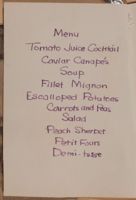 Menu
Tomato Juice Cocktail
Caviar Canapés
Soup
Fillet Mignon
Escalloped Potatoes
Carrots and Peas
Salad
Peach Sherbet
Petit Fours
Demi-tasse